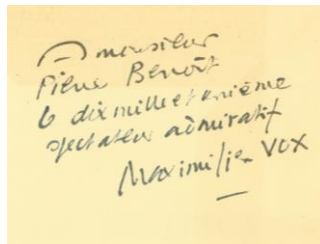 A monsieur
Pierre Benoît
6 dix mille et unième
spectateur admiratif
Maximilien Vox